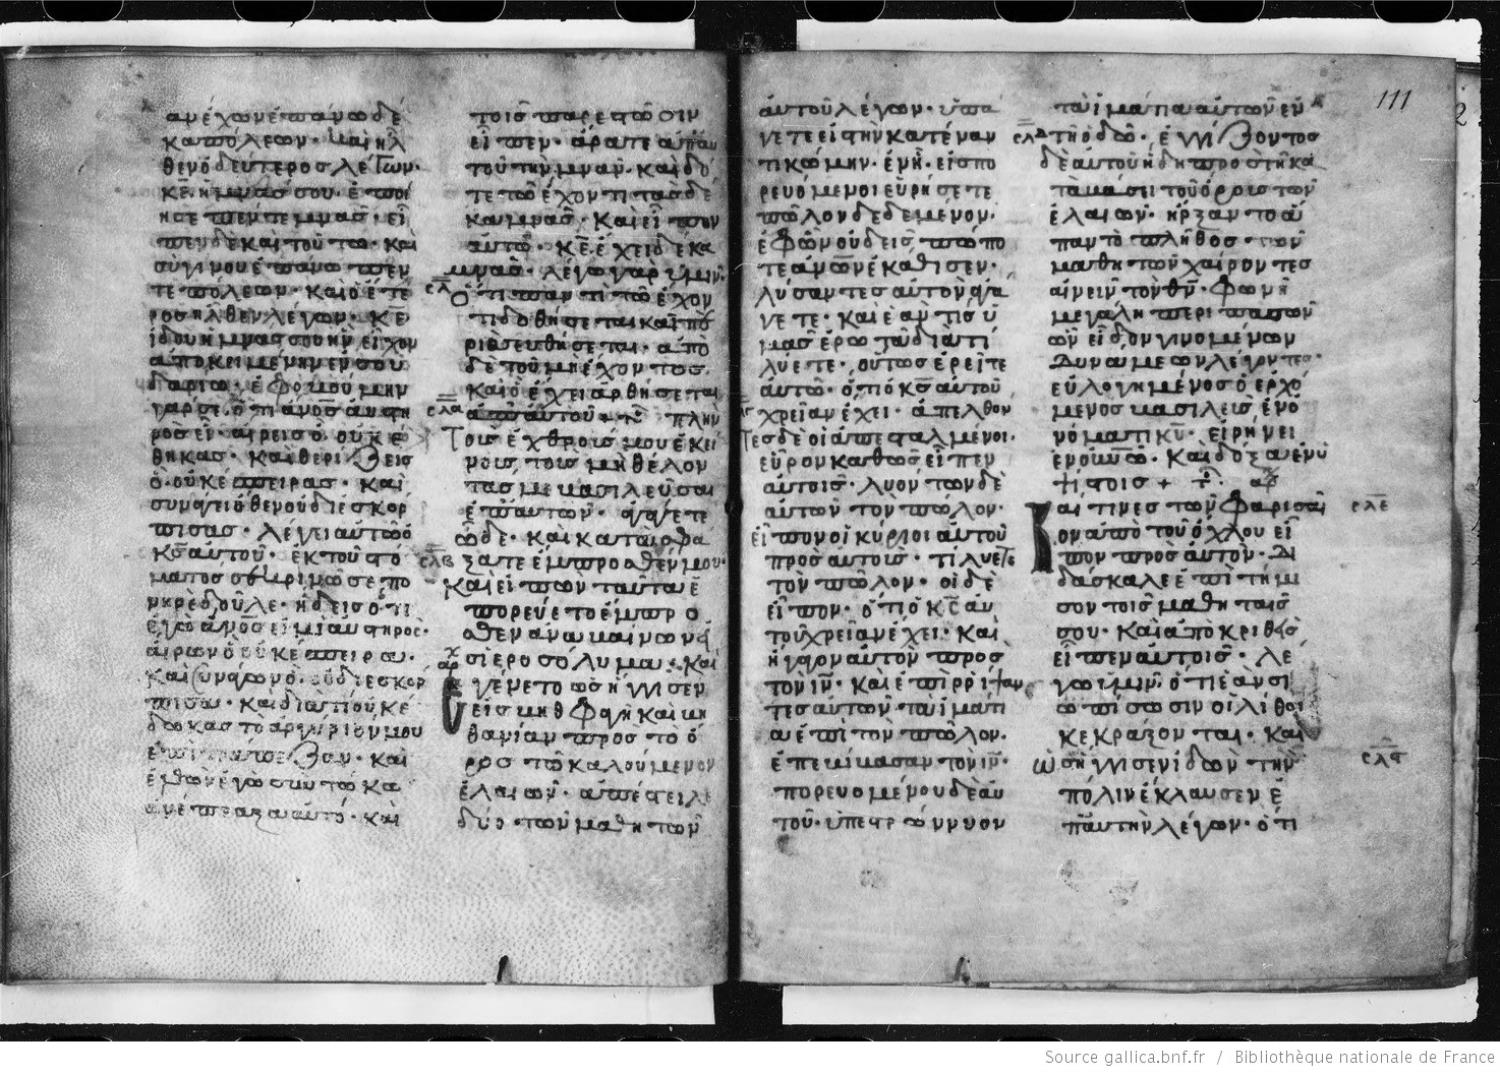 ἀν ἔχων ἐπάνω δέ
κα πόλεων· καὶ ἦλ
θεν ὁ δεύτερος λέγων·
κε̅ ἡ μνᾶ σου· ἐποί
ησε πέντε μνᾶς· εἶ
πεν δὲ καὶ τούτω· καὶ
σὺ γίνου ἐπάνω πέν
τε πόλεων· καὶ ὁ ἕτε
ρος ἦλθεν λέγων· κε̅
ἰδοὺ ἡ μνᾶ σου ἣν εἶχον
ἀποκειμένην ἐν σου
δαρίω· ἐφοβούμην
γάρ σε, ὅτι ἄνο̅ς̅ αὐστη
ρὸς εἶ· αἴρεις ὃ οὐκ ἔ
θηκας· καὶ θερίζεις
ὃ οὐκ ἔσπειρας· καὶ
συνάγεις ὅθεν οὐ διεσκόρ
πισας· λέγει αὐτῶ ὁ
κς̅ αὐτοῦ· ἐκ τοῦ στό
ματός σου κρινῶ σε πο
νηρὲ δοῦλε· ἤδεις ὅτι
ἐγὼ ἄνο̅ς̅ εἰμι αὐστηρός·
αἴρων ὃ οὐκ ἔσπειρα·
καὶ συνάγων ὃ οὐ διεσκόρ
πισα· καὶ διατί οὐκ ἔ
δωκας τὸ ἀργύριόν μου
ἐπὶ τράπεζαν· καὶ
ἐλθὼν ἐγὼ σὺν τόκω
ἀνέπραξα αὐτό· καὶ
τοῖς παρεστῶσιν
εἶπεν· ἄρατε ἀπ' αὐ
τοῦ τὴν μνᾶν· καὶ δό
τε τῶ ἔχοντι τὰς δέ
κα μνᾶς· καὶ εἶπον
αὐτῶ· κε̅ ἔχει δέκα
μνᾶς· λέγω γὰρ ὑμῖν·
ὅτι παντὶ τῶ ἔχον
τι δοθήσεται καὶ πε
ρισσευθήσεται· ἀπὸ
δὲ τοῦ μὴ ἔχοντος
καὶ ὃ ἔχει ἀρθήσεται
ελα ἀπ' αὐτοῦ + πλὴν
τοὺς ἐχθρούς μου ἐκεί
νους, τοὺς μὴ θέλον
τάς με βασιλεῦσαι
ἐπ' αὐτῶν· ἀγάγετε
ὧδε· καὶ κατασφά
ελβ ξατε ἔμπροσθέν μου·
καὶ εἰπὼν ταῦτα ἐ
πορεύετο ἔμπρο
σθεν ἀναβαίνων εἰ
ς ἱεροσόλυμα· καὶ
ἀρχ ἐγένετο ὡς ἤγγισεν
εἰς βηθφαγὴ καὶ βη
θανίαν πρὸς τὸ ὄ
ρος τὸ καλούμενον
ἐλαιῶν· ἀπέστειλε
δύο τῶν μαθητῶν
αὐτοῦ λέγων· ὑπά
γετε εἰς τὴν κατέναν
τι κώμην· ἐν ἧ εἰσπο
ρευόμενοι εὑρήσετε
πῶλον δεδεμένον·
ἐφ' ὃν οὐδεὶς πώπο
τε ἀνων̅ ἐκάθισεν·
λύσαντες αὐτὸν ἀγά
γετε· καὶ ἐάν τις ὑ
μᾶς ἐρωτᾶ διατί
λύετε, οὕτως ἐρεῖτε
αὐτῶ· ὅτι ὁ κς̅ αὐτοῦ
χρείαν ἔχει· ἀπελθόν
τες δὲ οἱ ἀπεσταλμένοι·
εὗρον καθὼς εἶπεν
αὐτοῖς· λυόντων δὲ
αὐτῶν τὸν πῶλον·
εἶπον οἱ κύριοι αὐτοῦ
πρὸς αὐτούς· τί λύετε
τὸν πῶλον· οἱ δὲ
εἶπον· ὅτι ὁ κς̅ αὐ
τοῦ χρείαν ἔχει· καὶ
ἤγαγον αὐτὸν πρὸς
τὸν ἰν̅· καὶ ἐπιρρίψαν
τες αὐτῶν τὰ ἱμάτι
α ἐπὶ τὸν πῶλον·
ἐπεβίβασαν τὸν ἰν̅·
πορευομένου δὲ αὐ
τοῦ· ὑπεστρώννυον
τὰ ἱμάτια αὐτῶν ἐν
ελδ τῆ ὁδῶ· ἐγγίζοντος
δὲ αὐτοῦ ἤδη πρὸς τῆ κα
ταβάσει τοῦ ὄρους τῶν
ἐλαιῶν· ἤρξαντο ἅ
παν τὸ πλῆθος τῶν
μαθητῶν χαίροντες
αἰνεῖν τὸν θν̅· φωνῆ
μεγάλη περὶ πασῶν
ὧν εἶδον γινομένων
δυνάμεων λέγοντες·
εὐλογημένος ὁ ἐρχό
μενος βασιλεὺς ἐν ὀ
νόματι κυ̅· εἰρήνη
ἐν οὐνω̅· καὶ δόξα ἐν ὑ
ψίστοις +
καί τινες τῶν φαρισαί ελε
ων ἀπὸ τοῦ ὄχλου εἶ
πον πρὸς αὐτόν· δι
δάσκαλε ἐπιτίμη
σον τοῖς μαθηταῖς
σου· καὶ ἀποκριθεὶς
εἶπεν αὐτοῖς· λέ
γω ὑμῖν, ὅτι ἐὰν σι
ωπήσωσιν οἱ λίθοι
κεκράξονται· καὶ
ὡς ἤγγισεν ἰδὼν τὴν ελς
πόλιν ἔκλαυσεν ἐ
π' αὐτὴν λέγων· ὅτι
111
Source gallica.bnf.fr / Bibliothèque nationale de France